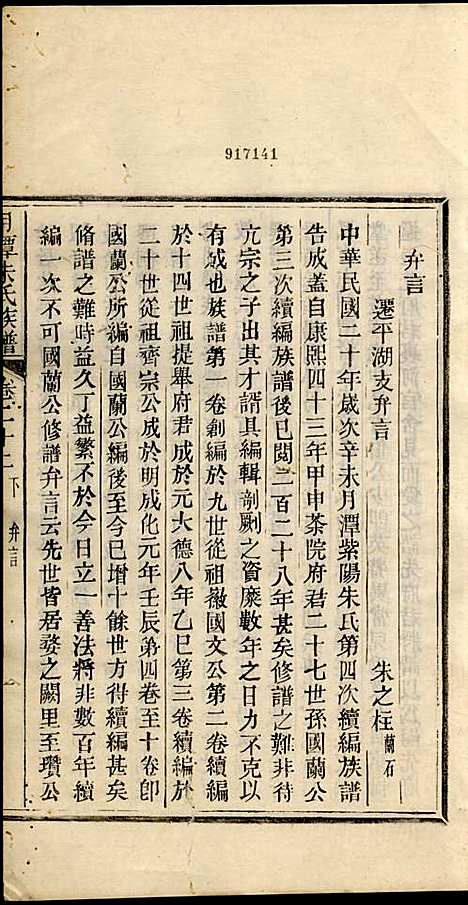 917141
弁言
遷平湖支弁言
朱之柱蘭石
中華民國二十年歲次辛未月潭紫陽朱氏第四次續編族譜
告成蓋自康熙四十三年甲申茶院府君二十七世孫國蘭公
第三次續編族譜後已閱二百二十八年甚矣修譜之難非待
亢宗之子出其才諝具編輯剞劂之資糜數年之日力不克以
有成也族譜第一卷創編於九世從祖徽國文公第二卷續編
於十四世祖提舉府君成於元大德八年乙巳第三卷續編於
二十世從祖齊宗公成於明成化元年壬辰第四卷至十卷卽
國蘭公所編自國蘭公編後至今已增十餘世方得續編甚矣
脩譜之難時益久丁益繁不於今日立一善法將非數百年續
編一次不可國蘭公修譜弁言云先世皆居婺之闕里至瓚公
月潭朱氏族譜 卷二十二下 弁言